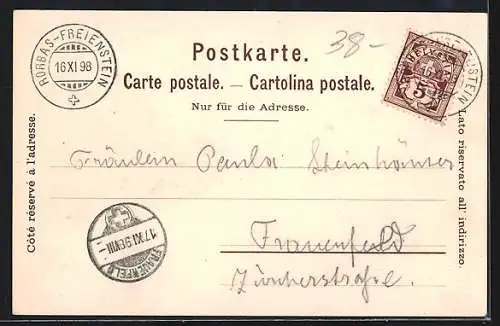 RORBAS-FREIENSTEIN
16 XI 98
38-
Postkarte.
Carte postale. — Cartolina postale.
Nur für die Adresse.
HELVETIA
5
Côté réservé à l'adresse.
Lato riservato all' indirizzo.
Fräulein Paula Steinhäuser
Frauenfeld
Zürcherstraße.
17 XI 98 VIII
FRAUENFELD